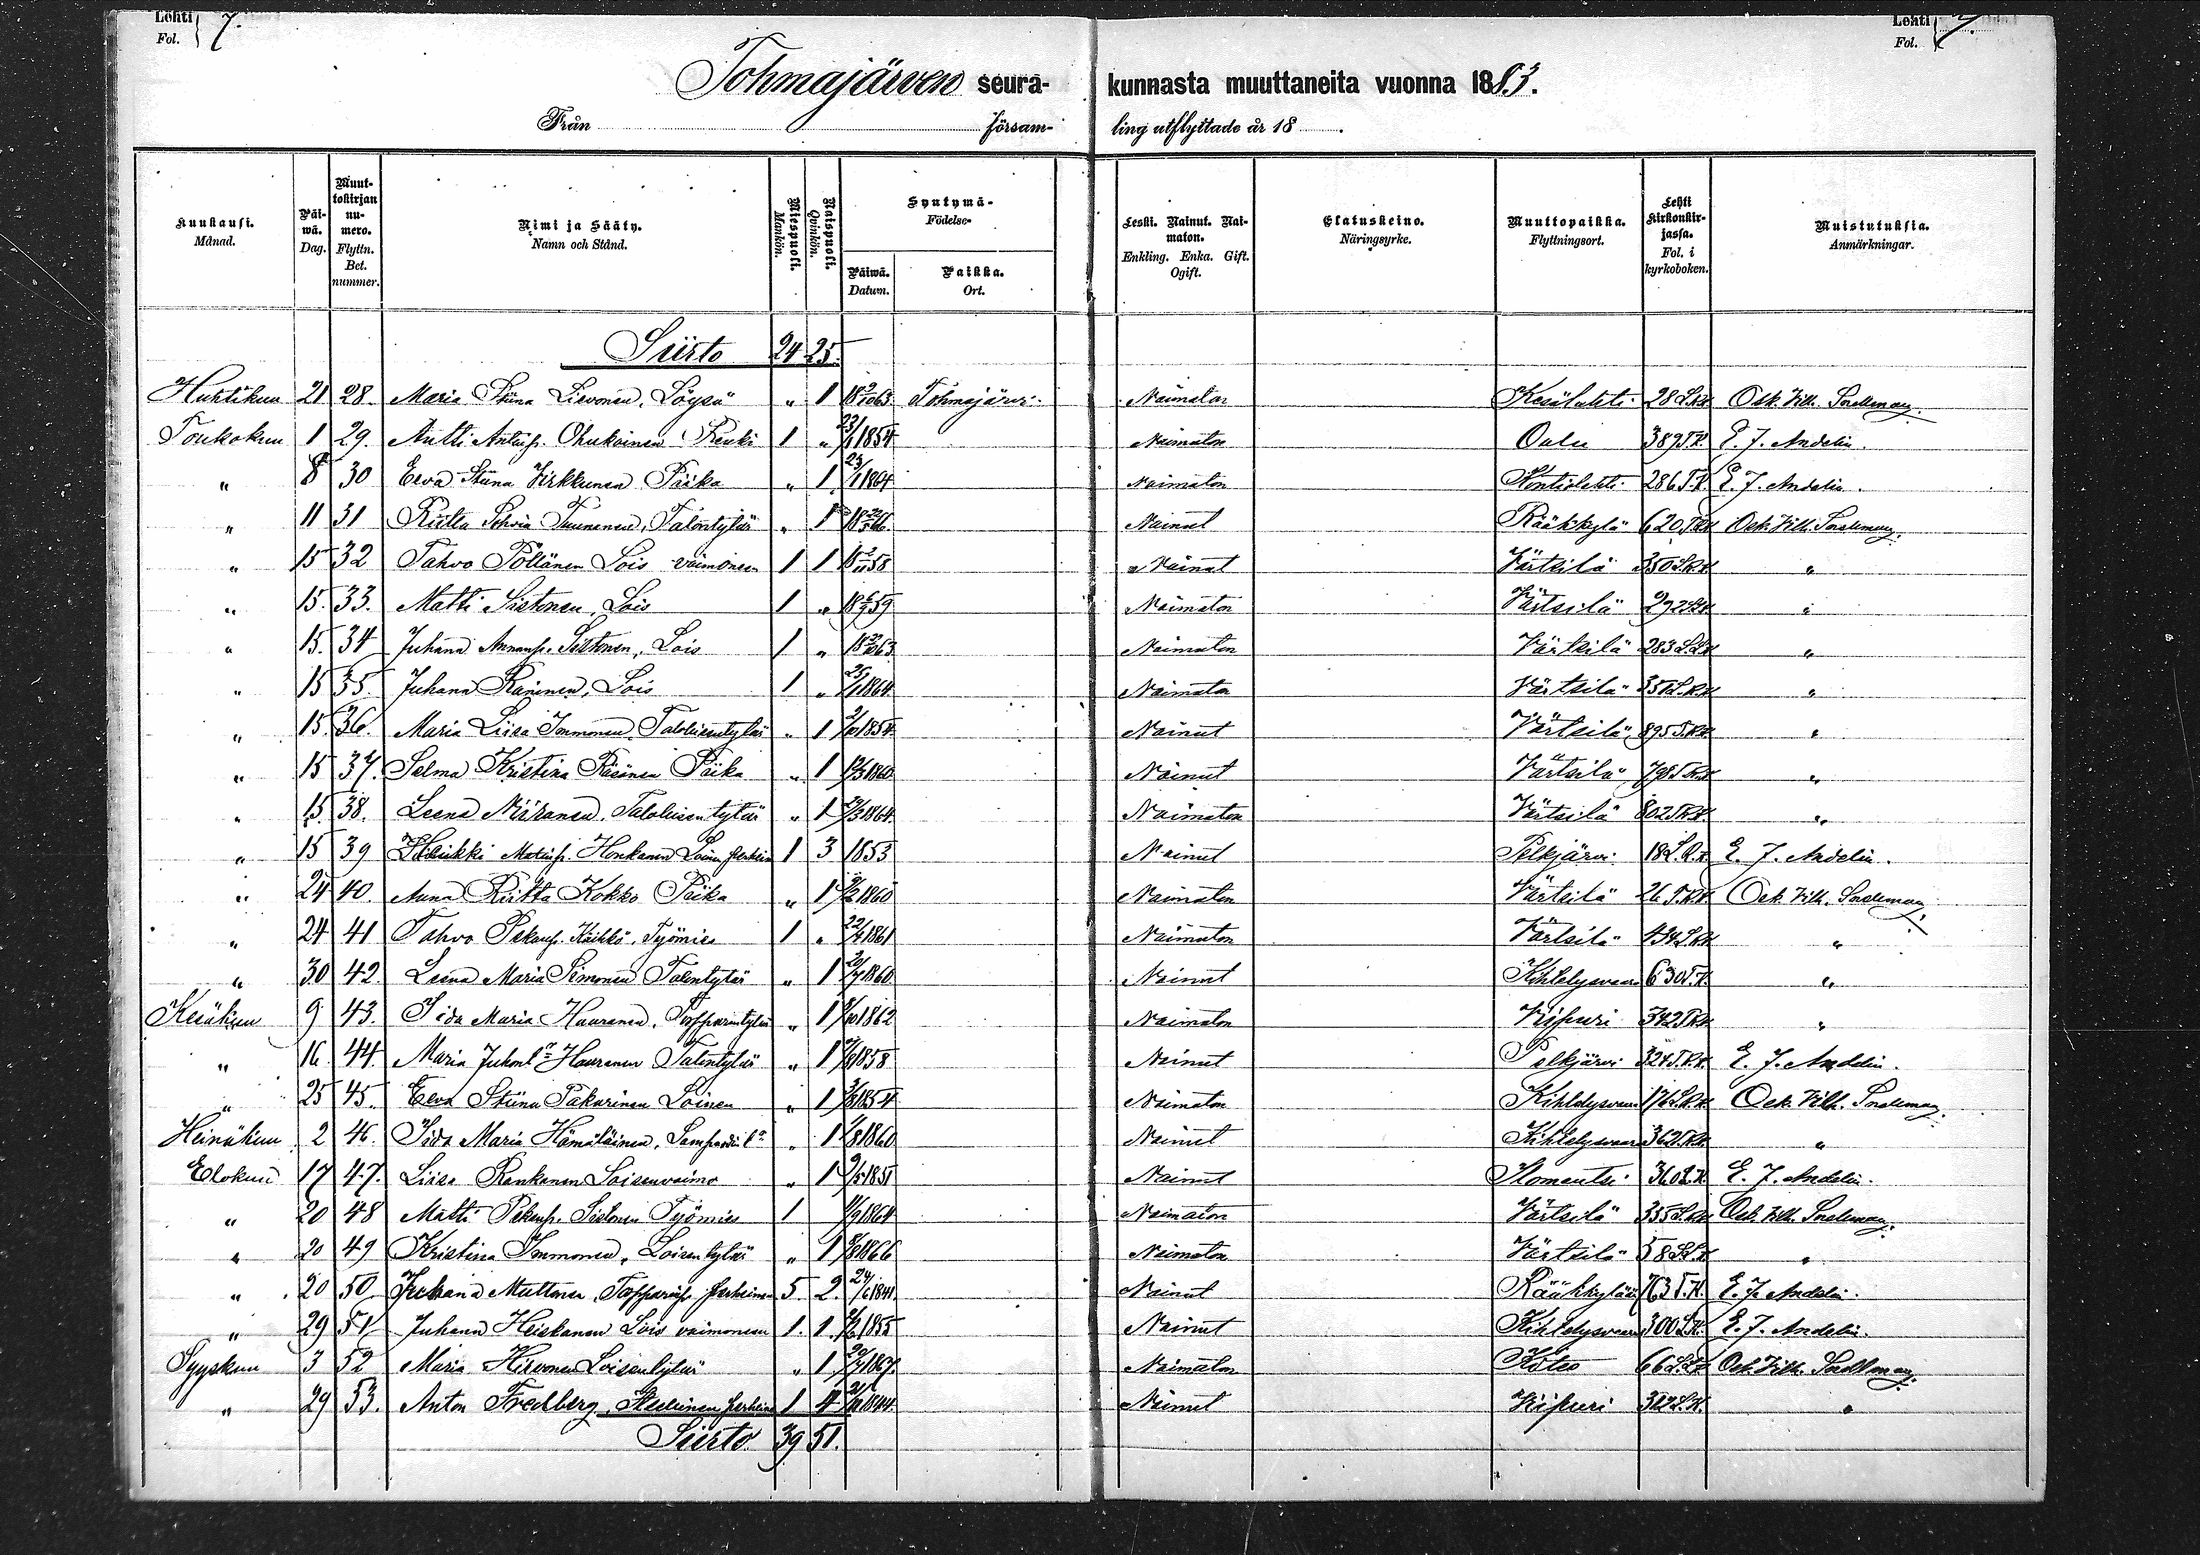 Lehti Fol. 7.
Lehti Fol. 7.
Tohmajärven seura- kunnasta muuttaneita vuonna 1883.
Från försam- ling utflyttade år 18 .
Kuukausi. Månad. Päiwä. Dag. Muuttokirjan numero. Flyttn. Bet. nummer. Nimi ja Sääty. Namn och Stånd. Miespuoli. Mankön. Naispuoli. Qvinkön. Syntymä- Födelse- Päiwä. Datum. Paikka. Ort. Leski. Nainut. Naimaton. Enkling. Enka. Gift. Ogift. Elatuskeino. Näringsyrke. Muuttopaikka. Flyttningsort. Lehti Kirkonkirjassa. Fol. i kyrkoboken. Muistutuksia. Anmärkningar.
Siirto 24 25.
Huhtikuu 21 28. Maria Stiina Lievonen, Löysä " 1 Tohmajärvi Naimaton Kesälahti 28 L.K. Osk. Vilh. Snellman.
Toukokuu 1 29. Antti Antinp. Ohukainen Renki 1 " 23/1 1854 Naimaton Oulu 389 T.K. E. J. Andelin.
" 8 30 Eeva Stiina Virkkunen Piika " 1 23/1 1864 Naimaton Kontiolahti 286 T.K. E. J. Andelin.
" 11 31 Riitta Sohvia Tuunanen, Talontytär " 1 Nainut Rääkkylä 620 T.K. Osk. Vilh. Snellman.
" 15 32 Tahvo Pöllänen Lois vaimoneen 1 1 Nainut Värtsilä 350 L.K. "
" 15. 33. Matti Sistonen, Lois 1 " Naimaton Värtsilä 292 L.K. "
" 15. 34 Juhana Annanp. Sistonen, Lois 1 " Naimaton Värtsilä 283 L.K. "
" 15 35. Juhana Raninen, Lois 1 " 25/1 1864 Naimaton Värtsilä 351 L.K. "
" 15. 36. Maria Liisa Immonen, Talollisentytär " 1 1854 Nainut Värtsilä 895 T.K. "
" 15 37. Selma Kristina Räsänen Piika " 1 1860 Nainut Värtsilä 798 T.K. "
" 15. 38. Leena Niiranen, Talollisentytär " 1 1864 Naimaton Värtsilä 802 T.K. "
" 15 39 Heikki Matinp. Honkanen Loinen perheineen 1 3 1853 Nainut Pelkjärvi 18 L.K. E. J. Andelin.
" 24 40. Anna Riitta Kokko Piika " 1 1860 Naimaton Värtsilä 26 T.K. Osk. Vilh. Snellman.
" 24 41 Tahvo Pekanp. Köykkö, Työmies 1 " 22/4 1861 Naimaton Värtsilä 434 L.K. "
" 30 42. Leena Maria Simonen Talontytär " 1 20/7 1860 Nainut Kihtelysvaara 630 T.K. "
Kesäkuu 9 43. Iida Maria Hauranen, Topparintytär " 1 1862 Naimaton Viipuri 342 T.K. "
" 16 44. Maria Juhont. Hauranen Talontytär " 1 1858 Nainut Pelkjärvi 324 T.K. E. J. Andelin.
" 25 45. Eeva Stiina Pakarinen Loinen " 1 1854 Naimaton Kihtelysvaara 176 L.K. Osk. Vilh. Snellman.
Heinäkuu 2 46. Iida Maria Hämäläinen, " 1 1860 Nainut Kihtelysvaara 362 T.K. "
Elokuu 17 47. Liisa Rankanen Loisenvaimo " 1 9/5 1851 Nainut Ilomantsi 360 L.K. E. J. Andelin.
" 20 48 Matti Pekanp. Sistonen Työmies 1 1864 Naimaton Värtsilä 335 L.K. Osk. Vilh. Snellman.
" 20 49 Kristina Immonen, Loisentytär " 1 1866 Naimaton Värtsilä 58 L.K. "
" 20 50. Juhana Muttonen, Topparinp. perheineen 5. 2. 24/6 1841 Nainut Rääkkylä 763 T.K. E. J. Andelin.
" 29 51 Juhana Heiskanen Lois vaimoneen 1. 1. 1855 Nainut Kihtelysvaara 300 L.K. E. J. Andelin.
Syyskuu 3 52 Maria Hirvonen Loisentytär " 1 1867. Naimaton 66 L.K. Osk. Vilh. Snellman.
" 29 53. Anton Fredberg, perheineen 1 4 1844 Nainut Viipuri 312 L.K. "
Siirto 39 51.